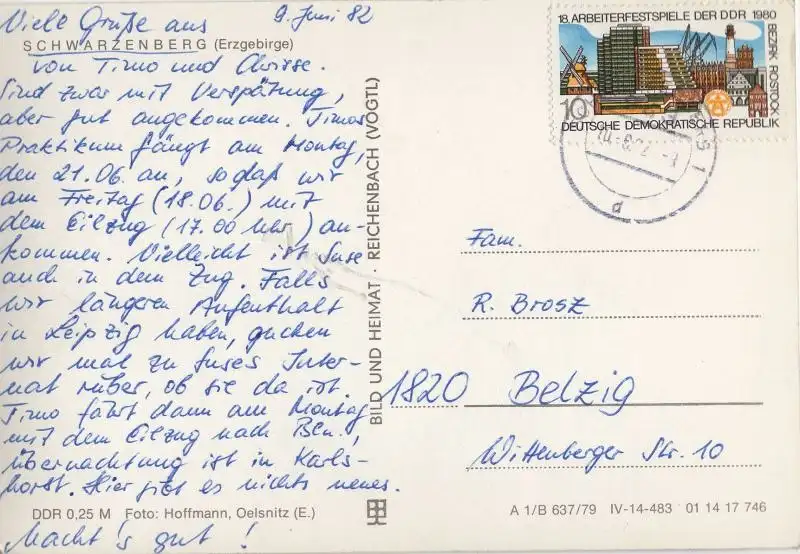 Viele Grüße aus 9. Juni 82
SCHWARZENBERG (Erzgebirge)
von Timo und Chrisse.
Sind zwar mit Verspätung,
aber gut angekommen. Timos
Praktikum fängt am Montag,
den 21.06. an, sodaß wir
am Freitag (18.06.) mit
dem Eilzug (17.00 Uhr) an-
kommen. Vielleicht ist Suse
auch in dem Zug. Falls
wir längeren Aufenthalt
in Leipzig haben, gucken
wir mal zu Suses Inter-
nat rüber, ob sie da ist.
Timo fährt dann am Montag
mit dem Eilzug nach Bln.,
übernachtung ist in Karls-
horst. Hier gibt es nichts neues.
Macht's gut!
DDR 0,25 M Foto: Hoffmann, Oelsnitz (E.)
BILD UND HEIMAT · REICHENBACH (VOGTL)
18. ARBEITERFESTSPIELE DER DDR 1980
BEZIRK ROSTOCK
10
DEUTSCHE DEMOKRATISCHE REPUBLIK
d
Fam.
R. Brosz
1820 Belzig
Wittenberger Str. 10
A 1/B 637/79 IV-14-483 01 14 17 746